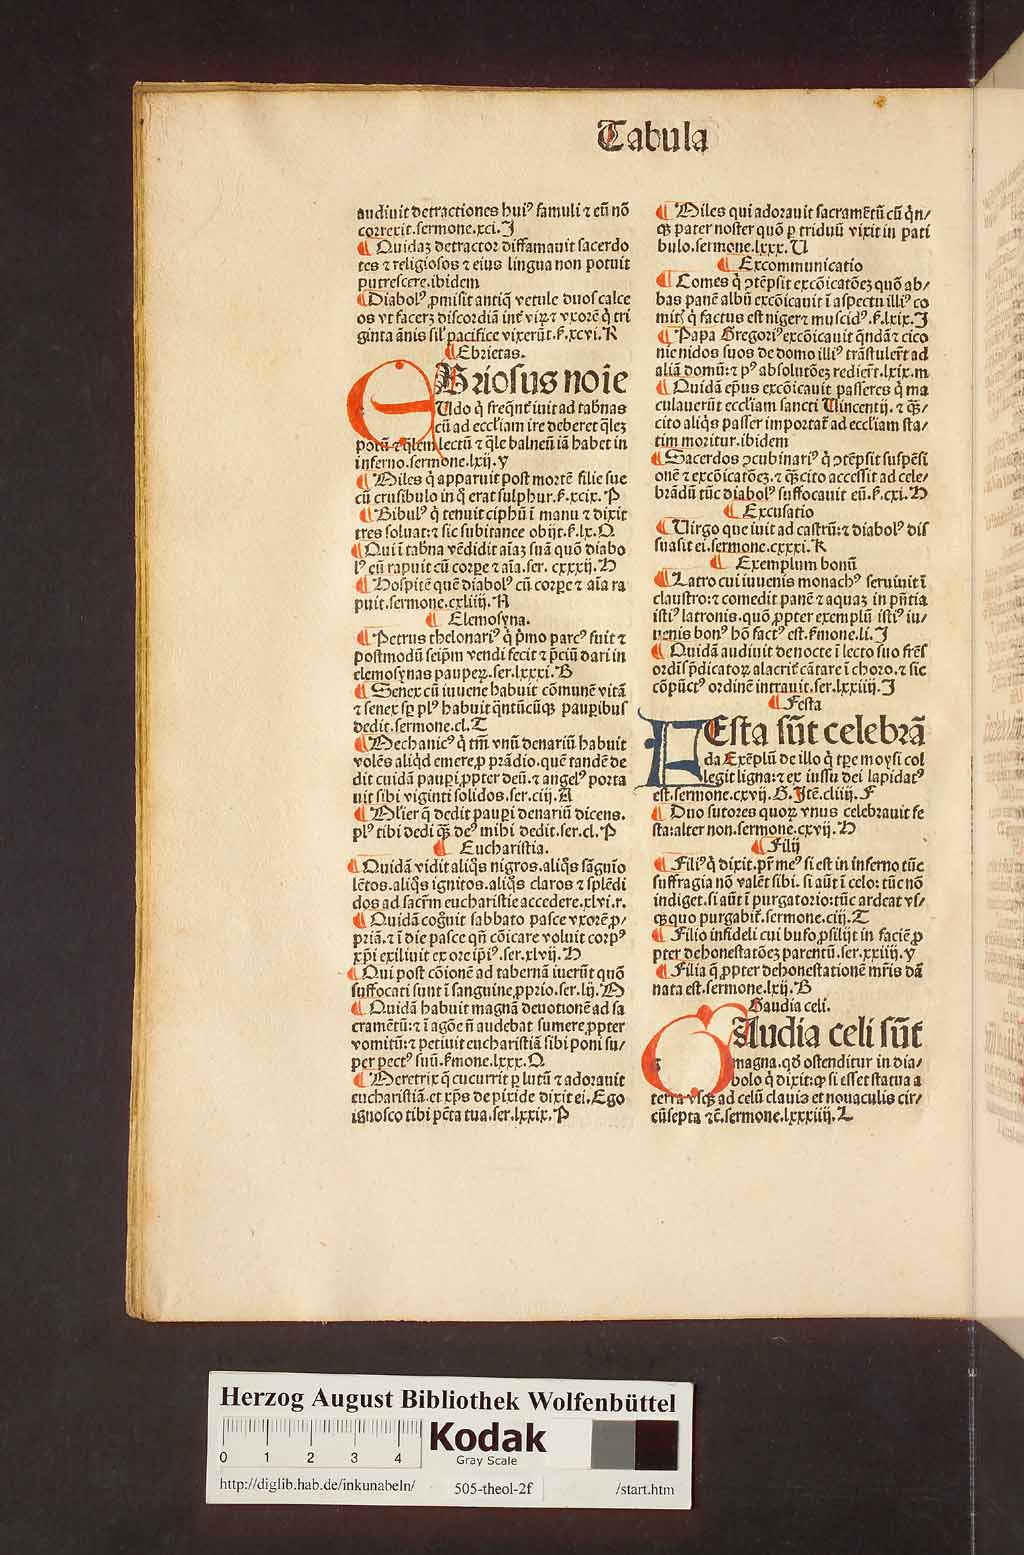 Tabula
audiuit detractiones huiꝰ famuli ⁊ eū nō
correxit.sermone.xci.J
¶ Quidaz detractor diffamauit sacerdo
tes ⁊ religiosos ⁊ eius lingua non potuit
putrescere.ibidem
¶Diabolꝰ ꝓmisit antiq̄ vetule duos calce
os vt facerꝫ discordiā int̄ viꝝ ⁊ vxorē q̇ tri
ginta ānis sil' pacifice vixerūt.ẜ.xcvi.K
¶Ebrietas.
EBriosus noīe
Udo q̇ freq̄nt̄ iuit ad tab̄nas
cū ad eccl̄iam ire deberet q̄leꝫ
potū ⁊ q̄lem lectū ⁊ q̄le balneū iā habet in
inferno.sermone.lxij.y
¶ Miles q̇ apparuit post mortē filie sue
cū crusibulo in q̇ erat sulphur.ẜ.xcix.P
¶Bibulꝰ q̇ tenuit ciphū ī manu ⁊ dixit
tres soluat:⁊ sic subitance obijt.ẜ.lx.Q
¶Qui ī tab̄na vēdidit aīaꝫ suā quō diabo
lꝰ eū rapuit cū corꝑe ⁊ aīa.ser. cxxxij.H
¶Hospitē quē diabolꝰ cū corꝑe ⁊ aīa ra
puit.sermone.cxliiij.A
¶ Elemosyna.
¶Petrus thelonariꝰ q̇ p̄mo parcꝰ fuit ⁊
postmodū seip̄m vendi fecit ⁊ p̄ciū dari in
elemosynas pauꝑeꝝ.ser.lxxxi.B
¶ Senex cū iuuene habuit cōmunē vitā
⁊ senex sꝑ plꝰ habuit q̄ntūcūqꝫ pauꝑibus
dedit.sermone.cl.T
¶Mechanicꝰ q̇ tm̄ vnū denariū habuit
volēs aliqd emere ꝓ prādio.quē tandē de
dit cuidā pauꝑi ꝓpter deū.⁊ angelꝰ porta
uit sibi viginti solidos.ser.ciij.A
¶Mlier q̄ dedit pauꝑi denariū dicens.
plꝰ tibi dedi qꝫ̄ deꝰ mihi dedit.ser.cl.P
¶ Eucharistia.
¶Quidā vidit aliq̄s nigros.aliq̄s sāguīo
lētos.aliq̄s ignitos.aliq̄s claros ⁊ splēdi
dos ad sacr̄m eucharistie accedere.xlvi.r.
¶ Quidā coḡuit sabbato pasce vxorē ꝓ/
priā.⁊ ī die pasce qn̄ cōicare voluit corpꝰ
xp̄i exiliuit ex ore ip̄iꝰ.ser.xlvij.H
¶Qui post cōionē ad tabernā iuerūt quō
suffocati sunt ī sanguine ꝓprio.ser.lij.M
¶ Quidā habuit magnā deuotionē ad sa
cramētū:⁊ ī agōe n̄ audebat sumere ꝓpter
vomitū:⁊ petiuit eucharistiā sibi poni su/
per pectꝰ suū.ẜmone.lxxx.Q
¶Meretrix q̄ cucurrit ꝑ lutū ⁊ adorauit
eucharistiā.et xp̄s de pixide dixit ei.Ego
ignosco tibi pc̄ta tua.ser.lxxix.P
¶Miles qui adorauit sacramētū cū q̇n/
qꝫ pater noster quō ꝑ triduū vixit in pati
bulo.sermone.lxxx.U
¶ Excommunicatio
¶Comes q̇ ↄtēpsit excōicatōeꝫ quō ab/
bas panē albū excōicauit ī aspectu illiꝰ co
mitꝭ q̇ factus est niger ⁊ muscidꝰ.ẜ.lxix.J
¶Papa Gregoriꝰ excōicauit q̄ndā ⁊ cico
nie nidos suos de domo illiꝰ trāstuler̄t ad
aliā domū:⁊ pꝰ absolutōeꝫ redier̄t.lxix.m
¶Quidā ep̄us excōicauit passeres q̇ ma
culauerūt eccl̄iam sancti Uincentij. ⁊ qꝫ̄/
cito aliq̇s passer importat̄ ad eccl̄iam sta/
tim moritur.ibidem
¶Sacerdos ↄcubinariꝰ q̇ ↄtēpsit suspēsi
onē ⁊ excōicatōeꝫ.⁊ qꝫ̄cito accessit ad cele/
brādū tūc diabolꝰ suffocauit eū.ẜ.cxi.H
¶ Excusatio
¶Uirgo que iuit ad castrū:⁊ diabolꝰ dis
suasit ei.sermone.cxxxi.K
¶ Exemplum bonū
¶Latro cui iuuenis monachꝰ seruiuit ī
claustro:⁊ comedit panē ⁊ aquaꝫ in pn̄tia
istiꝰ latronis.quō ꝓpter exemplū istiꝰ iu/
uenis bonꝰ hō factꝰ est.ẜmone.li.J
¶Quidā audiuit de nocte ī lecto suo fr̄es
ordīs p̄dicatoꝝ alacrit̄ cātare ī choro.⁊ sic
cōpūctꝰ ordinē intrauit.ser.lxxiiij.J
¶Festa
FEsta sūt celebrā
da Exēplū de illo q̇ tꝑe moysi col
legit ligna:⁊ ex iussu dei lapidatꝰ
est.sermone.cxvij.G.Itē.cliiij.F
¶Duo sutores quoꝝ vnus celebrauit fe
sta:alter non.sermone.cxvij.H
¶Filij
¶Filiꝰ q̇ dixit.pr̄ meꝰ si est in inferno tūc
suffragia nō valēt sibi. si aūt ī celo: tūc nō
indiget.si aūt ī purgatorio:tūc ardeat vs/
qꝫ quo purgabit̄.sermone.ciij.T
¶ Filio infideli cui bufo ꝓsilijt in faciē ꝓ
pter dehonestatōeꝫ parentū.ser.xxiiij.y
¶Filia q̄ ꝓpter dehonestationē mr̄is dā
nata est.sermone.lxij.B
Gaudia celi.
GAudia celi sūt
magna.qd̄ ostenditur in dia/
bolo q̇ dixit:ꝙ si esset statua a
terra vsqꝫ ad celū clauis et nouaculis cir/
cūsepta ⁊c̄.sermone.lxxxiiij.L
Herzog August Bibliothek Wolfenbüttel
0 1 2 3 4
Kodak
Gray Scale
http://diglib.hab.de/inkunabeln/ 505-theol-2f /start.htm